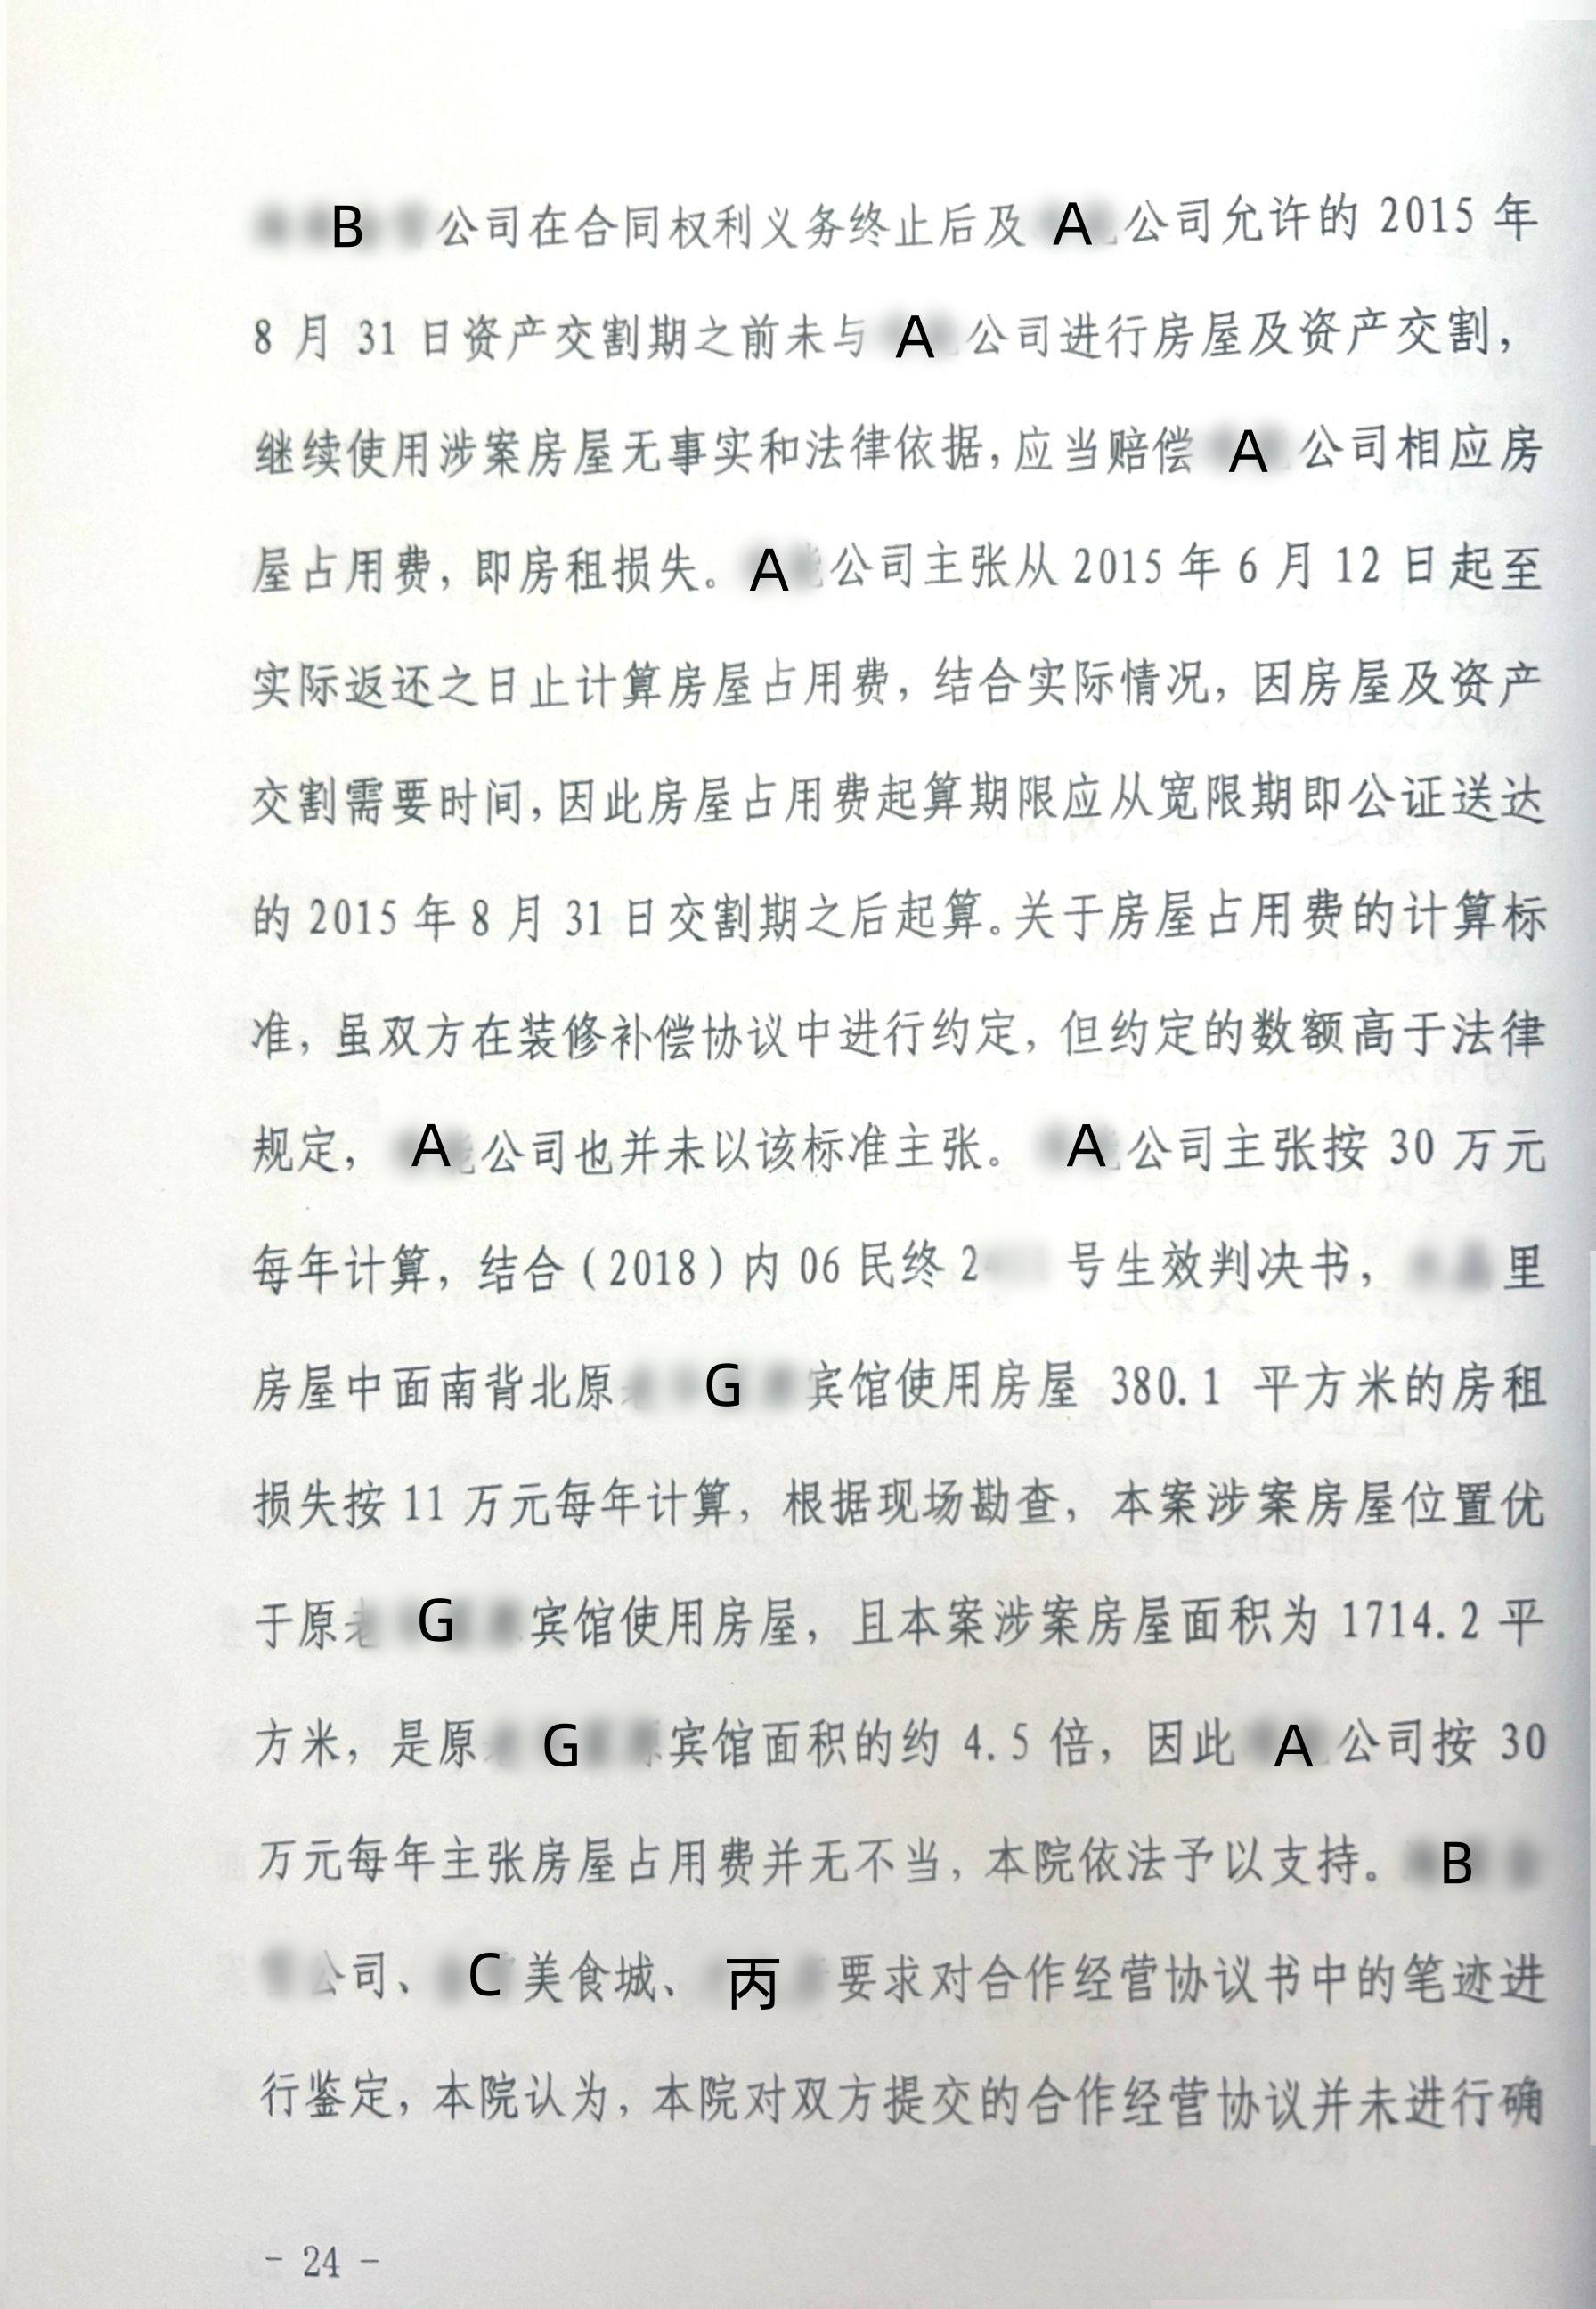 B公司在合同权利义务终止后及A公司允许的 2015 年
8 月 31 日资产交割期之前未与A公司进行房屋及资产交割，
继续使用涉案房屋无事实和法律依据，应当赔偿A公司相应房
屋占用费，即房租损失。A公司主张从 2015 年 6 月 12 日起至
实际返还之日止计算房屋占用费，结合实际情况，因房屋及资产
交割需要时间，因此房屋占用费起算期限应从宽限期即公证送达
的 2015 年 8 月 31 日交割期之后起算。关于房屋占用费的计算标
准，虽双方在装修补偿协议中进行约定，但约定的数额高于法律
规定，A公司也并未以该标准主张。A公司主张按 30 万元
每年计算，结合（2018）内 06 民终 2 号生效判决书，里
房屋中面南背北原G宾馆使用房屋 380.1 平方米的房租
损失按 11 万元每年计算，根据现场勘查，本案涉案房屋位置优
于原G宾馆使用房屋，且本案涉案房屋面积为 1714.2 平
方米，是原G宾馆面积的约 4.5 倍，因此A公司按 30
万元每年主张房屋占用费并无不当，本院依法予以支持。B
公司、C美食城、丙要求对合作经营协议书中的笔迹进
行鉴定，本院认为，本院对双方提交的合作经营协议并未进行确
- 24 -